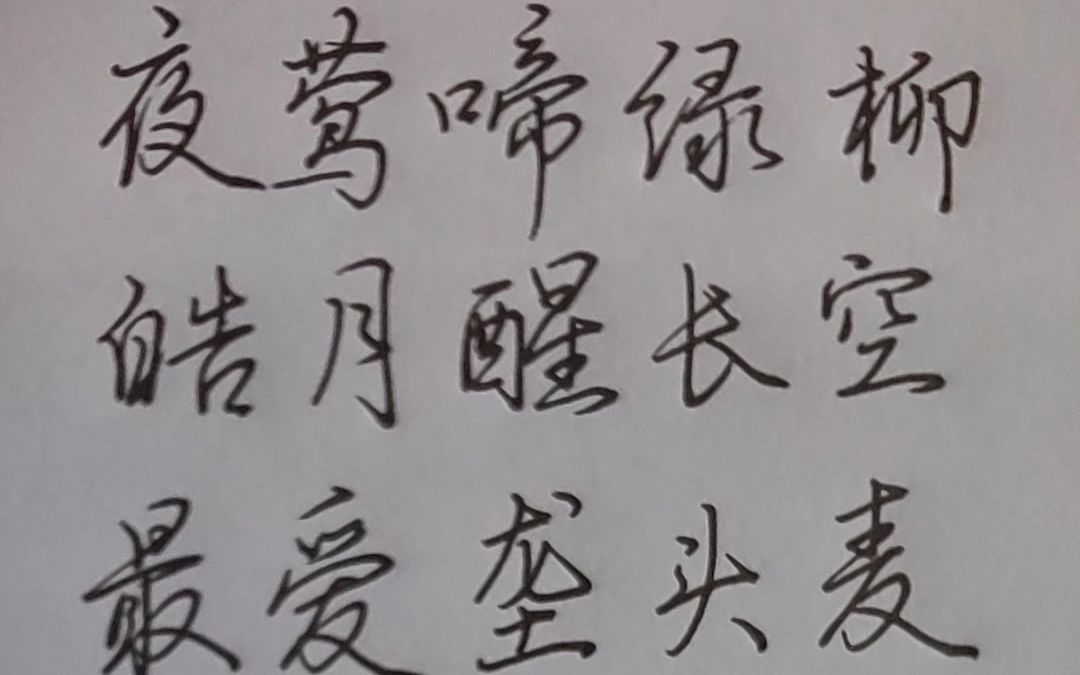 夜莺啼绿柳
皓月醒长空
最爱垄头麦